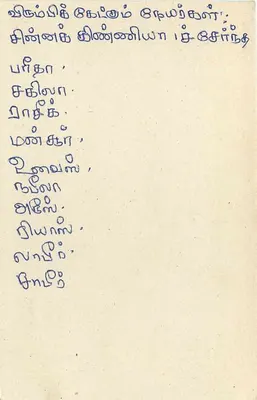 விரும்பிக் கேட்கும் நேயர்கள்:
சின்னக் கிண்ணியா டச் சேர்ந்த
பரீதா.
சகிலா.
ராசீக்.
மன்சூர்.
உவைஸ்.
நபீலா
அஸீஸ்.
ரியாஸ்.
லாபீர்.
சாபீர்